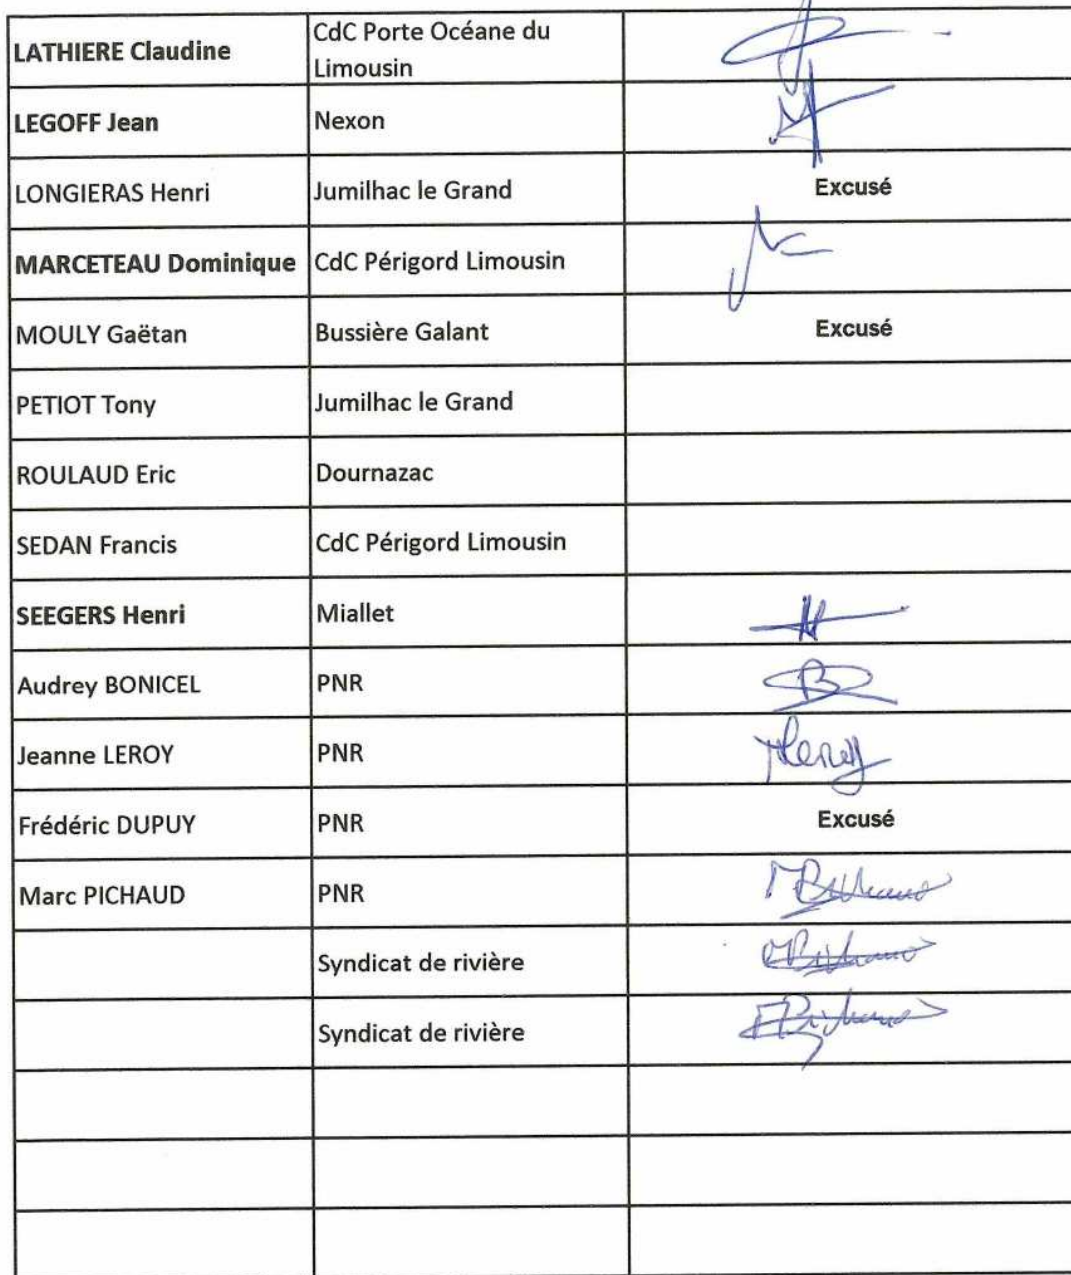 LATHIERE Claudine CdC Porte Océane du
Limousin
LEGOFF Jean Nexon
LONGIERAS Henri Jumilhac le Grand Excusé
MARCETEAU Dominique CdC Périgord Limousin
MOULY Gaëtan Bussière Galant Excusé
PETIOT Tony Jumilhac le Grand
ROULAUD Eric Dournazac
SEDAN Francis CdC Périgord Limousin
SEEGERS Henri Miallet
Audrey BONICEL PNR
Jeanne LEROY PNR
Frédéric DUPUY PNR Excusé
Marc PICHAUD PNR
Syndicat de rivière
Syndicat de rivière